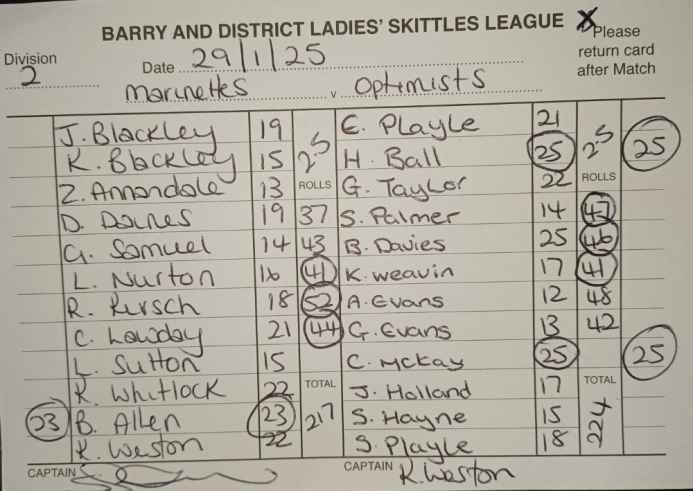 BARRY AND DISTRICT LADIES' SKITTLES LEAGUE X Please
return card
after Match
Division
2
Date 29/1/25
Marinettes v Optimists
J. Blackley 19 2.5 E. Playle 21 2.5
K. Blackley 15 H. Ball 25 25
Z. Annandale 13 ROLLS G. Taylor 22 ROLLS
D. Daines 19 37 S. Palmer 14 47
G. Samuel 14 43 B. Davies 25 46
L. Nurton 16 41 K. Weavin 17 41
R. Kirsch 18 52 A. Evans 12 48
C. Lowday 21 44 G. Evans 13 42
L. Sutton 15 C. McKay 25 25
K. Whitlock 22 TOTAL J. Holland 17 TOTAL
23 B. Allen 23 217 S. Hayne 15 224
K. Weston 22 S. Playle 18
CAPTAIN CAPTAIN K. Weston